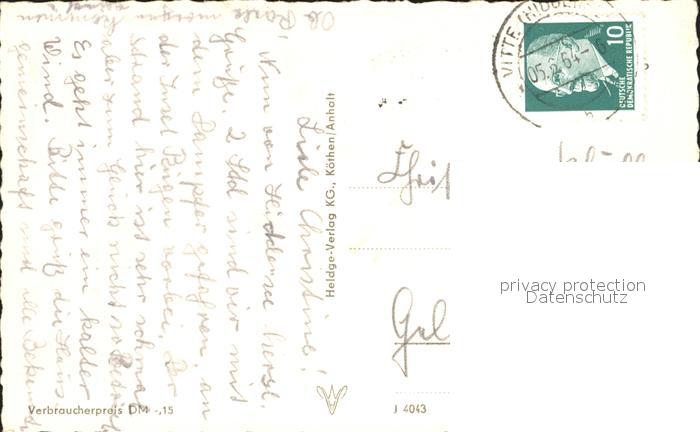 Liebe Christine!
Nun von Hiddensee herzl.
Grüße. 2 Std sind wir mit
dem Dampfer gefahren, an
der Insel Rügen vorbei. Der
Strand hier ist sehr schmal
aber zum Glück nicht so
Es geht immer ein kalter
Wind. Bitte grüß die Haus-
gemeinschaft und alle
Heldge-Verlag KG., Köthen/Anhalt
Verbraucherpreis DM -,15
J 4043
VITTE (HIDDEN
05.6.64-
10
DEUTSCHE
DEMOKRATISCHE REPUBLIK
privacy protection
Datenschutz